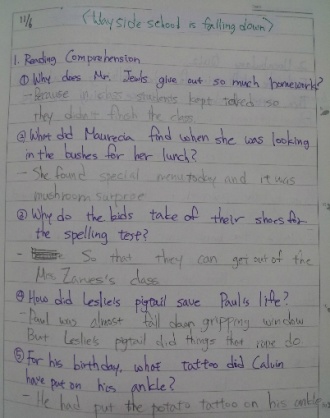 11/6
<Wayside school is falling down>
1. Reading Comprehension
① Why does Mr. Jewls give out so much homework?
- Because in class students kept talked so
they didn't finsh the class.
② What did Maurecia find when she was looking
in the bushes for her lunch?
- She found special menu today and it was
mushroom surprise
③ Why do the bids take of their shoes for
the spelling test?
- So that they can get out of the
Mrs. Zarves's class
④ How did Leslie's pigtail save Paul's life?
- Paul was almost fall down gripping window
But Leslie's pigtail did things that rope do.
⑤ For his birthday, what tattoo did Calvin
have put on his ankle?
- He had put the potato tattoo on his ankle